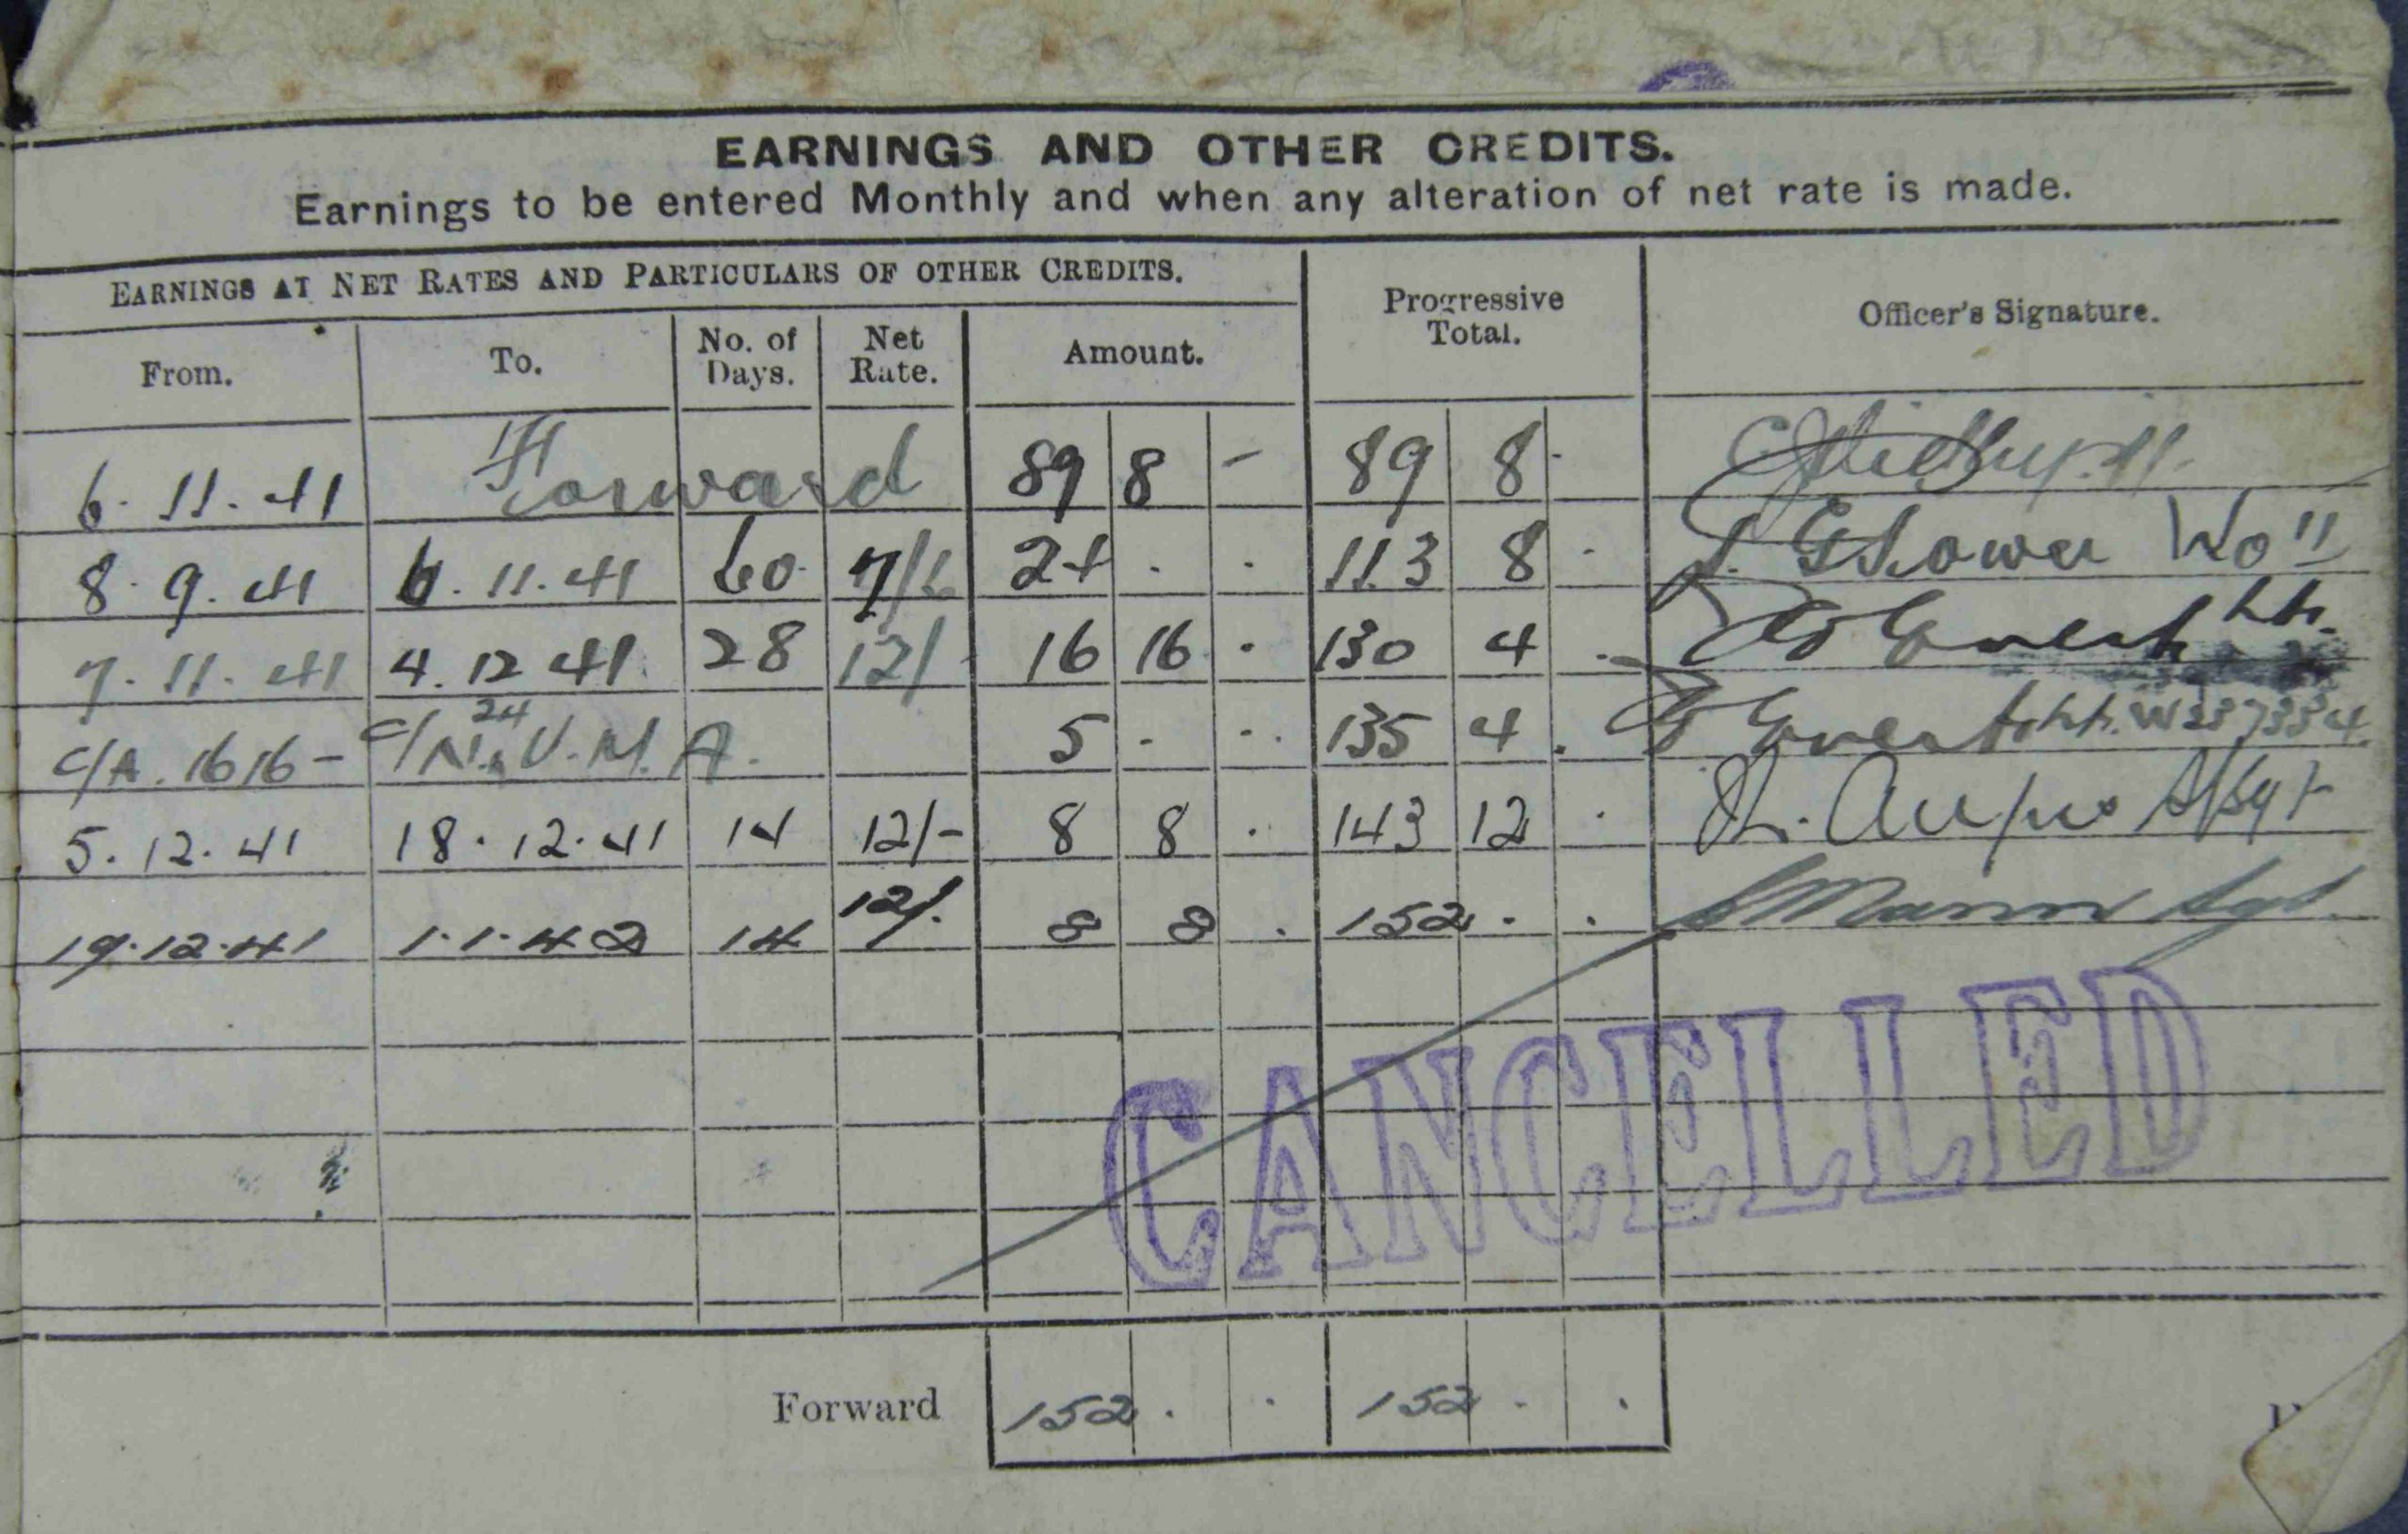 EARNINGS AND OTHER CREDITS.
Earnings to be entered Monthly and when any alteration of net rate is made.
EARNINGS AT NET RATES AND PARTICULARS OF OTHER CREDITS.
Progressive Total.
Officer's Signature.
From. To. No. of Days. Net Rate. Amount.
6.11.41 Forward 89 8 - 89 8 -
8.9.41 6.11.41 60 24 . . 113 8 . WO II
7.11.41 4.12.41 28 12/- 16 16 . 130 4 . Lt.
C/A. 1616 - 24 V.M.A. 5 - . 135 4 .
5.12.41 18.12.41 14 12/- 8 8 . 143 12 .
19.12.41 1.1.42 14 12/- 8 8 . 152 . . Mann Sgt.
CANCELLED
Forward 152 . . 152 . .